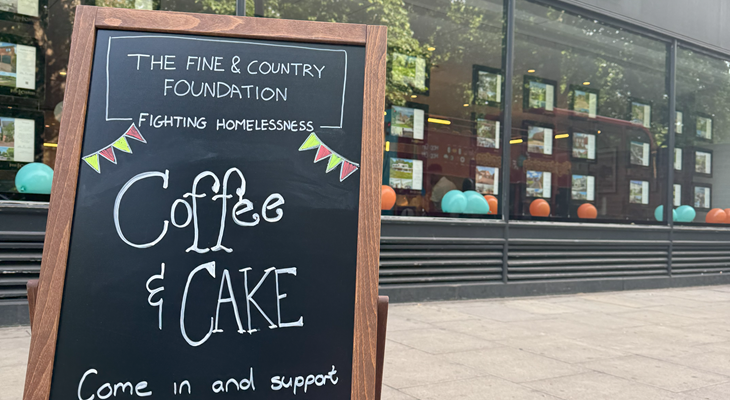 THE FINE & COUNTRY
FOUNDATION
FIGHTING HOMELESSNESS
Coffee
& CAKE
Come in and support